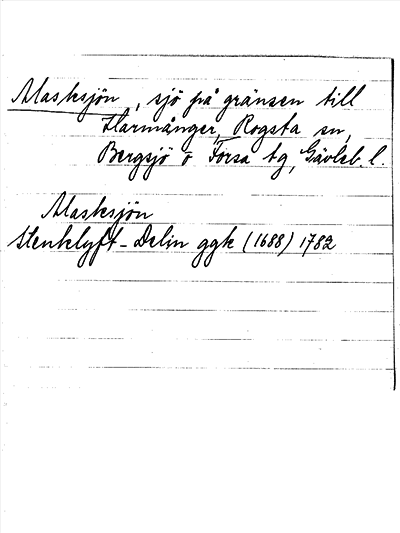 Masksjön, sjö på gränsen till
Harmånger, Rogsta sn,
Bergsjö o Forsa tg, Gävleb. l.
Masksjön
Stenklyft-Delin ggk (1688) 1782